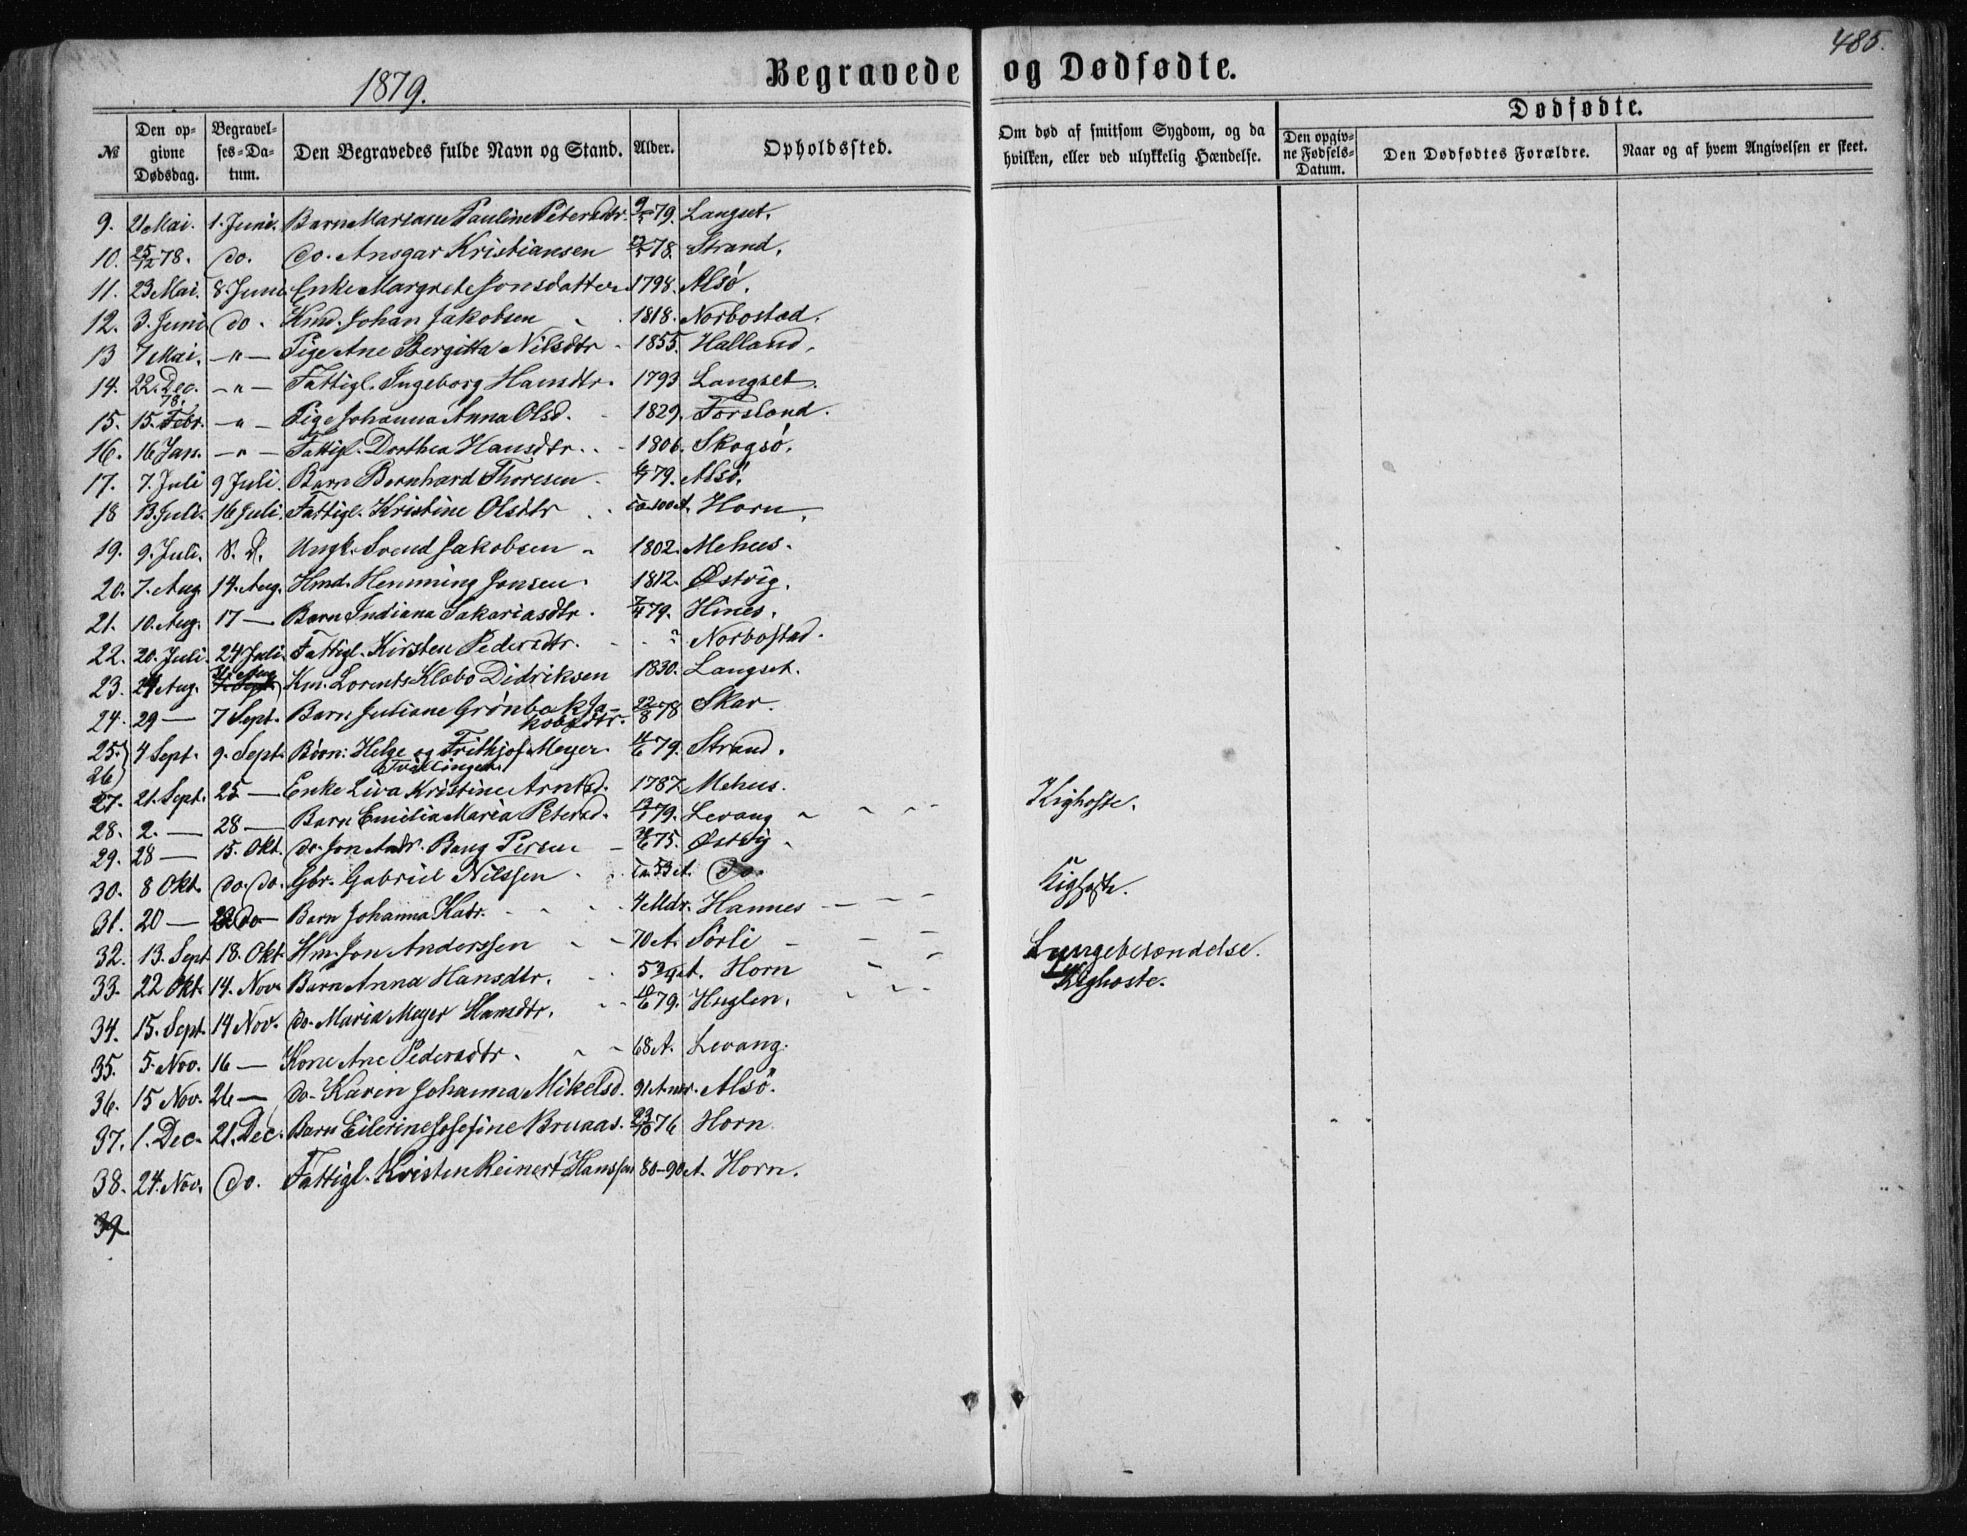 485.
1879.
Begravede og Dødfødte.
Dødfødte.
No
Den op-
givne
Dødsdag.
Begravel-
ses-Da-
tum.
Den Begravedes fulde Navn og Stand.
Alder.
Opholdssted.
Om død af smitsom Sygdom, og da
hvilken, eller ved ulykkelig Hændelse.
Den opgiv-
ne Fødsels-
Datum.
Den Dødfødtes Forældre.
Naar og af hvem Angivelsen er skeet.
9. 21 Mai. 1. Juni. Barn Mariane Pauline Petersdtr. 79. Langset.
10. 25/12 78. do. do. Ansgar Kristiansen 78. Strand.
11. 23 Mai. 8. Juni Enke Margrete Jonsdatter 1798. Alsø.
12. 3. Juni do. Kmd. Johan Jakobsen 1818. Norbostad.
13 7 Mai. -"- Pige Ane Bergitta Nilsdtr 1855. Halland.
14. 22. Dec. 78. -"- Fattigl. Ingeborg Hansdtr. 1793 Langset.
15. 15. Febr. -"- Pige Johanna Anna Olsd. 1829. Forsland.
16. 16 Jan. -"- Fattigl. Dorthea Hansdtr. 1806. Skogsø.
17. 7. Juli 9 Juli. Barn Bernhard Thoresen 79. Alsø.
18 13. Juli. 16 Juli. Fattigl. Kristine Olsdtr ca. 100 A. Horn.
19. 9. Juli. S. D. Ungk. Svend Jakobsen 1802. Mehus.
20. 7. Aug. 14. Aug. Hmd. Hemming Jonsen. 1812. Østvig.
21. 10. Aug. 17 — Barn Indiana Sakariasdtr. 7/4 79. Hines.
22. 20. Juli. 24 Juli. Fattigl. Kirsten Pedersdtr. " Norbostad.
23. 24 Aug. 31 Aug Km. Lorents Klæbo Didriksen 1830. Langset.
24. 29 — 7 Sept. Barn Juliane Grønbæk Ja-
kobsdtr. 22/8 78 Skar.
25. 4 Sept. 9. Sept. Børn: Helge og Frithjof Meyer. 79. Strand.
26 Tvillinger.
27. 21. Sept. 25 — Enke Liva Kristine Arntsd. 1787. Mehus.
28. 2. — 28 — Barn Emilia Maria Petersd. 79. Levang Kighoste.
29. 28 — 15. Okt. do. Jon Andr. Bang Persen 75. Østvig
30. 8 Okt. do. do. Gbr. Gabriel Nilssen ca 53 A. do.
31. 20 — do — Barn Johanna Katr. 4 Mdr. Hannes Kighoste.
32. 13. Sept 18. Okt. Hm. Jon Anderssen 70 A. Sørli Lungebetændelse.
33. 22 Okt. 14. Nov. Barn Anna Hansdtr. Horn Kighoste.
34. 15. Sept. 14 Nov. do. Maria Meyer Hansdtr. 79. Huglen.
35. 5. Nov. 16 — Kone Ane Pedersdtr. 68 A. Levang.
36. 15 Nov. 26 — do. Karen Johanna Mikelsd. 91 A. Alsø.
37. 1. Dec. 21. Dec. Barn Eilerine Josefine Bruaas. 23/10 76 Horn
38. 24. Nov. do. Fattigl. Kristen Reinert Hanssen 80-90 A. Horn.
39